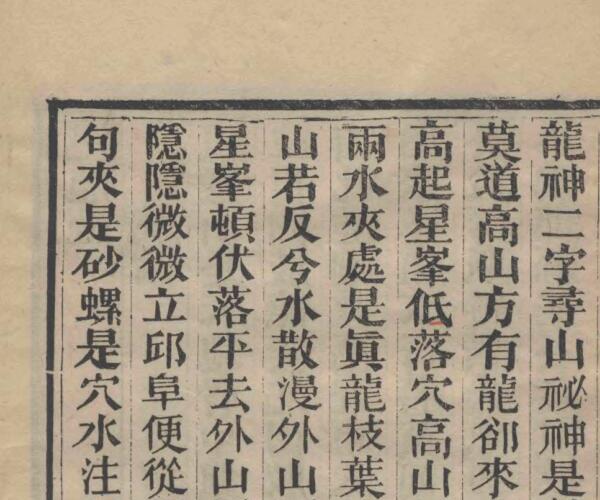 龍神二字尋山祕神是
莫道高山方有龍卻來
高起星峯低落穴高山
兩水夾處是眞龍枝葉
山若反兮水散漫外山
星峯頓伏落平去外山
隱隱微微立邱阜便從
句夾是砂螺是穴水注